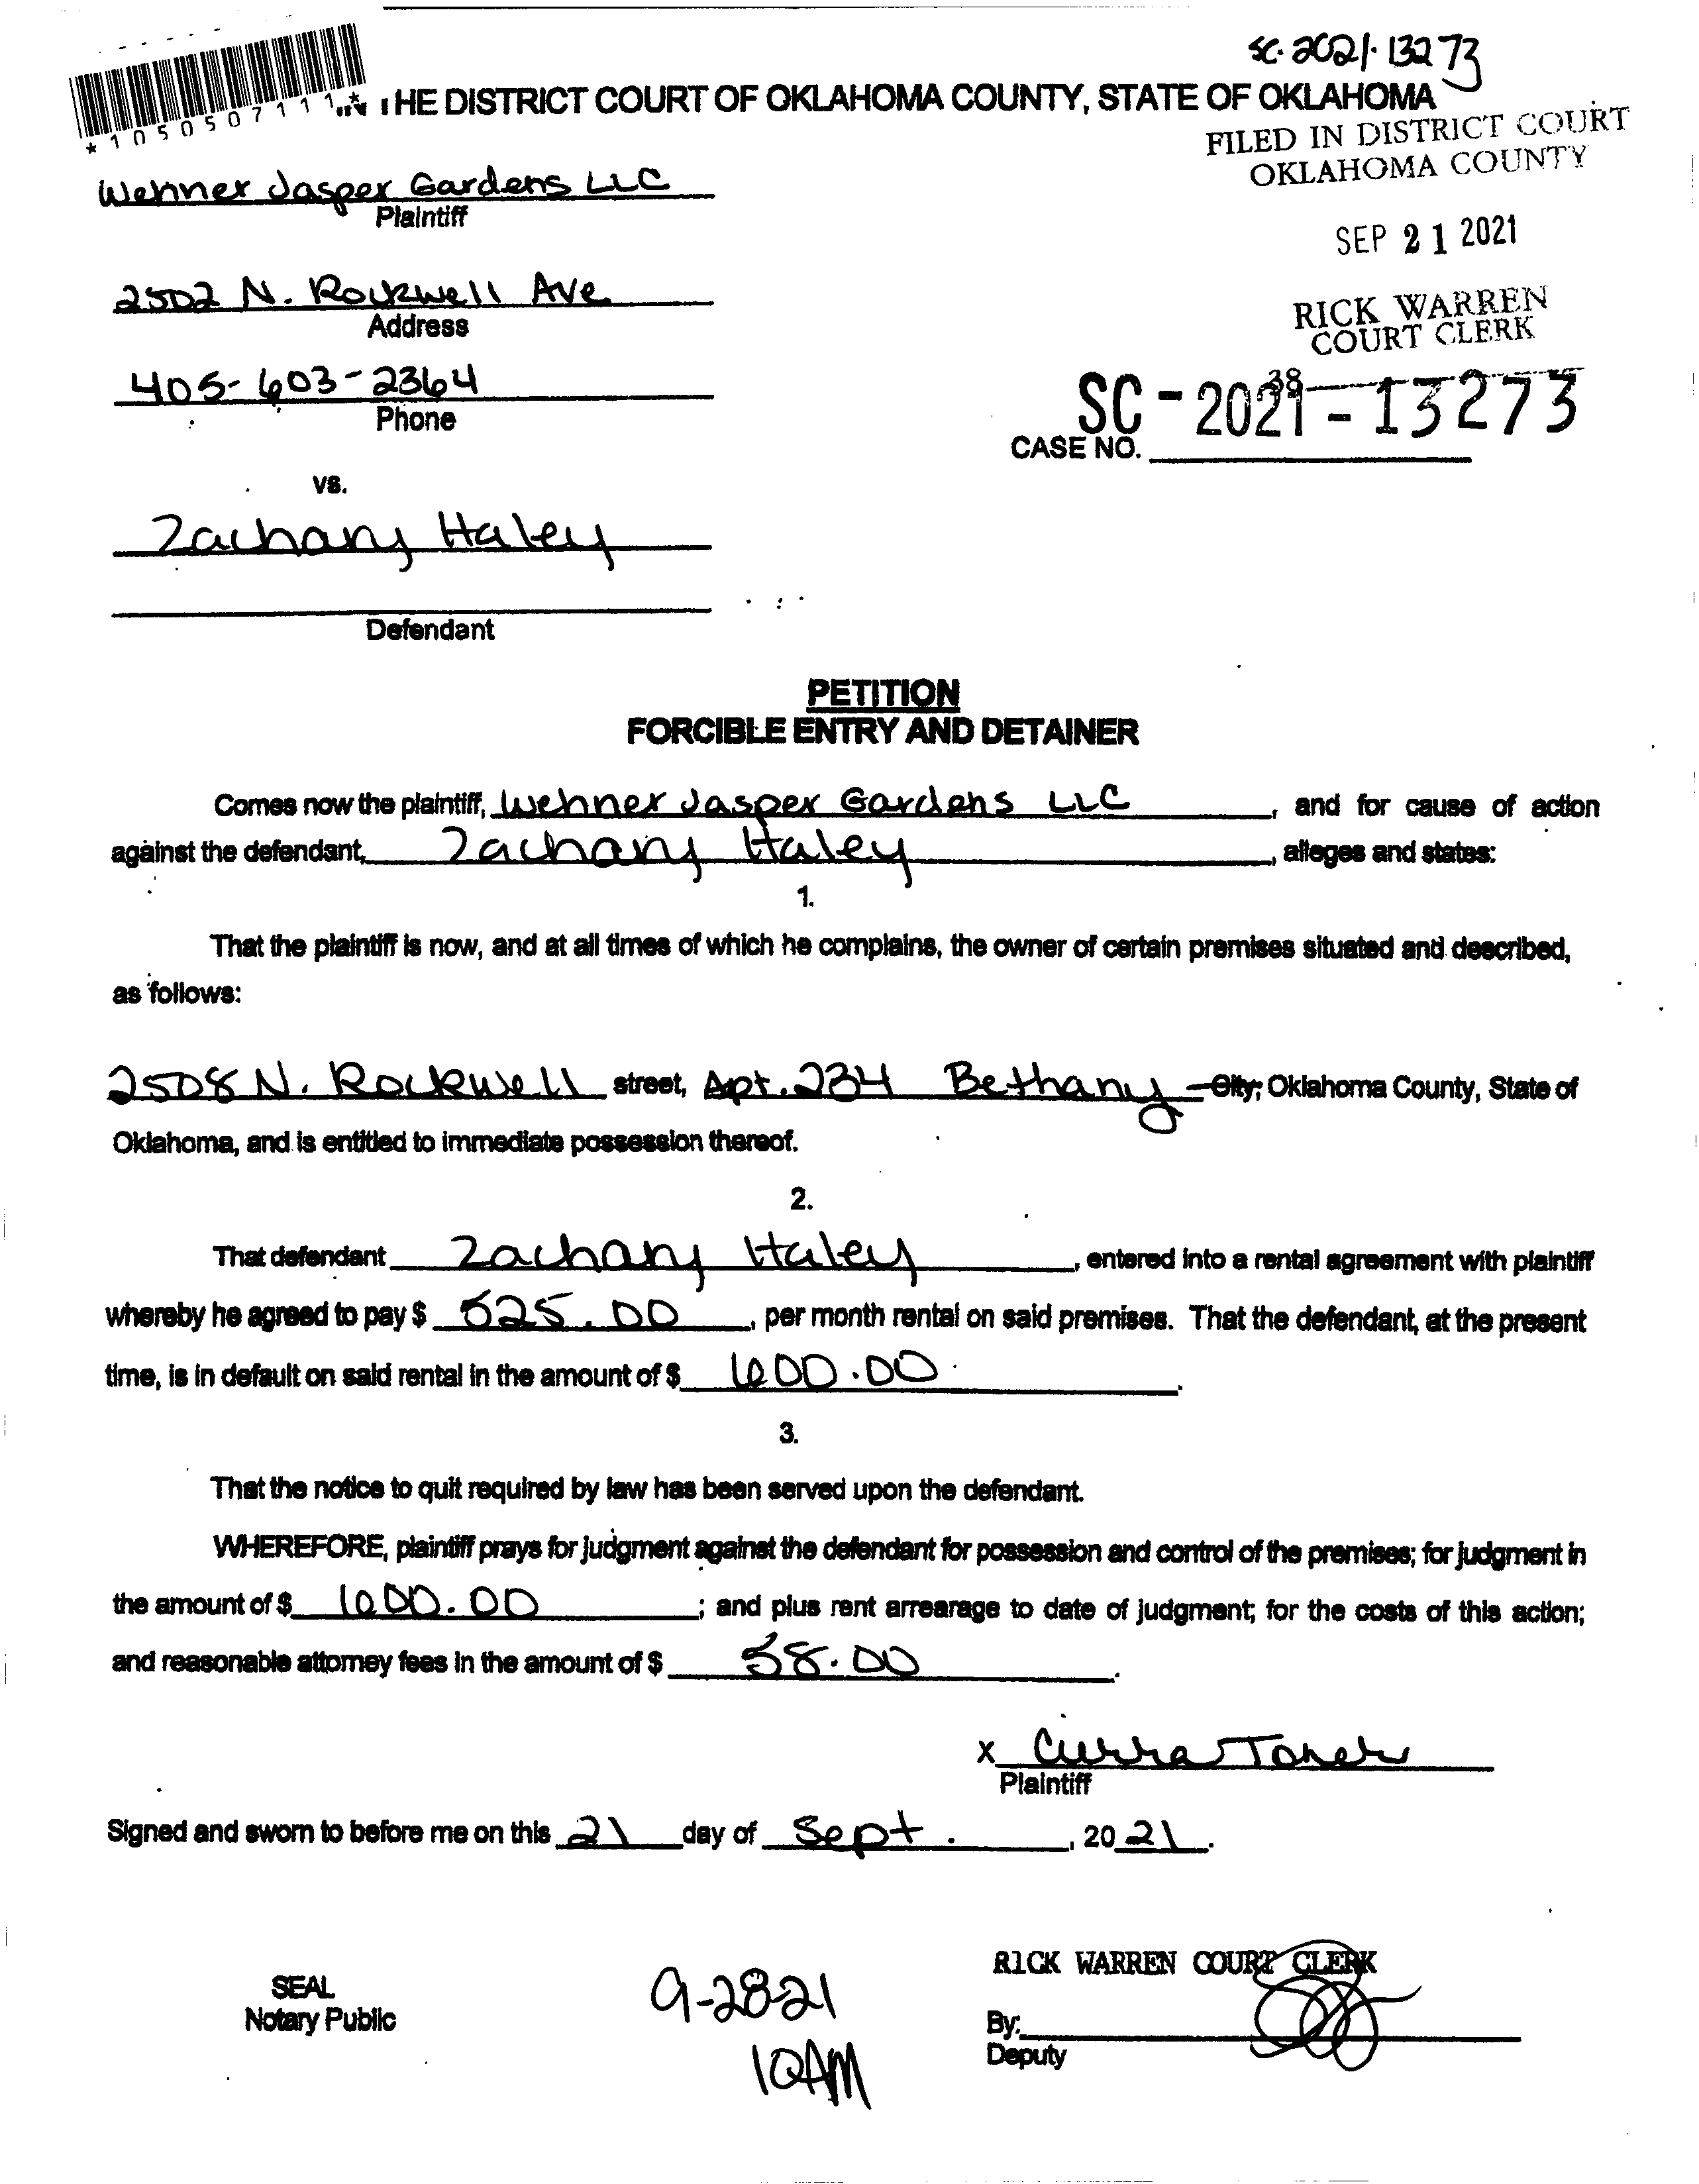 SC-2021-13273
*1050507111*
IN THE DISTRICT COURT OF OKLAHOMA COUNTY, STATE OF OKLAHOMA
FILED IN DISTRICT COURT
OKLAHOMA COUNTY
SEP 21 2021
RICK WARREN
COURT CLERK
38
SC - 2021 - 13273
CASE NO.
Wehner Jasper Gardens LLC
Plaintiff
2502 N. Rockwell Ave
Address
405-603-2364
Phone
vs.
Zachary Haley
Defendant
PETITION
FORCIBLE ENTRY AND DETAINER
Comes now the plaintiff, Wehner Jasper Gardens LLC, and for cause of action
against the defendant, Zachary Haley, alleges and states:
1.
That the plaintiff is now, and at all times of which he complains, the owner of certain premises situated and described,
as follows:
2508 N. Rockwell street, Apt. 234 Bethany City; Oklahoma County, State of
Oklahoma, and is entitled to immediate possession thereof.
2.
That defendant Zachary Haley, entered into a rental agreement with plaintiff
whereby he agreed to pay $ 525.00, per month rental on said premises. That the defendant, at the present
time, is in default on said rental in the amount of $ 600.00.
3.
That the notice to quit required by law has been served upon the defendant.
WHEREFORE, plaintiff prays for judgment against the defendant for possession and control of the premises; for judgment in
the amount of $ 600.00; and plus rent arrearage to date of judgment; for the costs of this action;
and reasonable attorney fees in the amount of $ 58.00.
x Toner
Plaintiff
Signed and sworn to before me on this 21 day of Sept., 20 21.
SEAL
Notary Public
9-28-21
10AM
RICK WARREN COURT CLERK
By:
Deputy